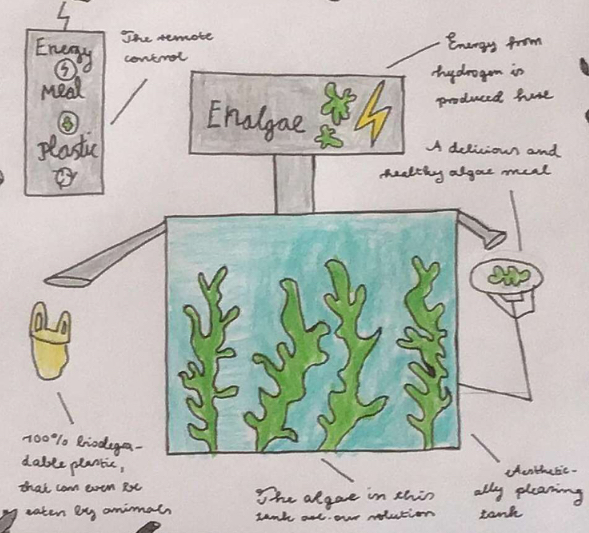 Energy
Meal
Plastic
The remote
control
Enalgae
Energy from
hydrogen is
produced here
A delicious and
healthy algae meal
100% biodegra-
dable plastic,
that can even be
eaten by animals
The algae in this
tank are our solution
Aesthetic-
ally pleasing
tank